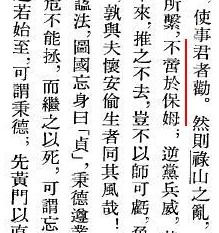 ，使事君者勸。然則祿山之亂，
所繫，不啻於保姆；逆黨兵威，
來，推之不去，豈不以師可虧，
敦與夫懷安偷生者同其風哉！
謚法，圖國忘身曰「貞」，秉德遵業
危不能拯，而繼之以死，可謂忘
若始至，可謂秉德；先黃門以直